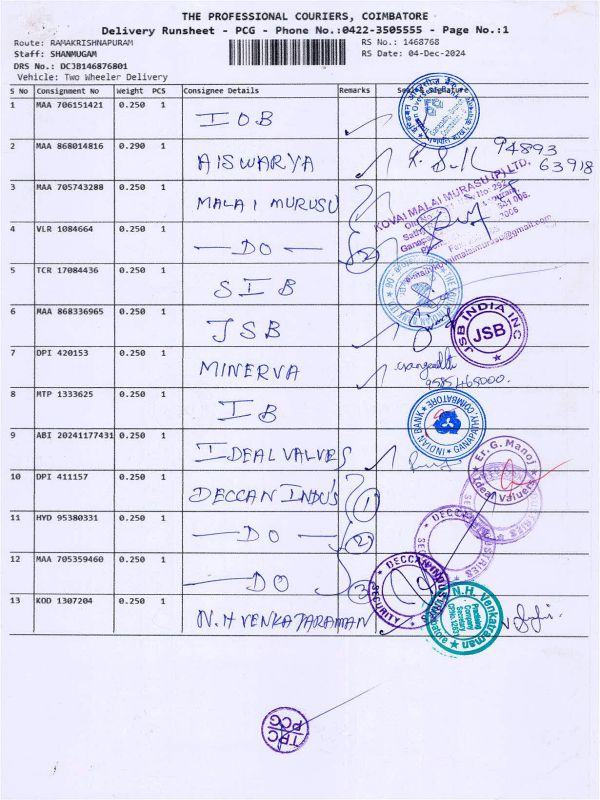 THE PROFESSIONAL COURIERS, COIMBATORE
Delivery Runsheet - PCG - Phone No.:0422-3505555 - Page No.:1
Route: RAMAKRISHNAPURAM RS No.: 1468768
Staff: SHANMUGAM RS Date: 04-Dec-2024
DRS No.: DCJB146876801
Vehicle: Two Wheeler Delivery
S No Consignment No Weight PCS Consignee Details Remarks Seal & Signature
1 MAA 706151421 0.250 1 IOB
2 MAA 868014816 0.290 1 AISWARYA 94893
63918
3 MAA 705743288 0.250 1 MALAI MURUSU
KOVAI MALAI MURASU (P) LTD.
4 VLR 1084664 0.250 1 DO 2
5 TCR 17084436 0.250 1 SIB
6 MAA 868336965 0.250 1 JSB
JSB INDIA INC
JSB
7 DPI 420153 0.250 1 MINERVA
9585468000.
8 MTP 1333625 0.250 1 IB
INDIAN BANK GANAPATHY COIMBATORE
9 ABI 20241177431 0.250 1 IDEAL VALVES
Er. G. Manoj
Ideal Valuers
10 DPI 411157 0.250 1 DECCAN INDU'S 1
11 HYD 95380331 0.250 1 DO 2
12 MAA 705359460 0.250 1 DO 3
DECCAN INDUSTRIES
SECURITY
13 KOD 1307204 0.250 1 N.H VENKATARAMAN
N.H. Venkatraman
Practising
Company
Secretary
TPC
PCG